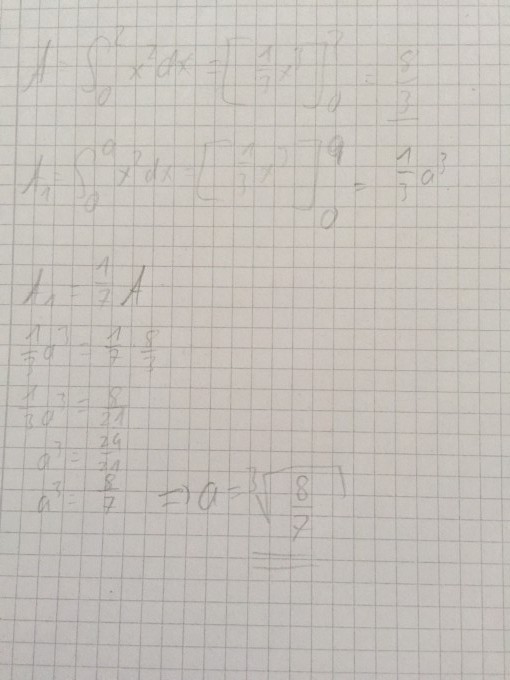 A = ∫₀² x² dx = [1/3 x³]₀² = 8/3
A₁ = ∫₀ᵃ x² dx = [1/3 x³]₀ᵃ = 1/3 a³
A₁ = 1/7 A
1/3 a³ = 1/7 · 8/3
1/3 a³ = 8/21
a³ = 24/21
a³ = 8/7 ⇒ a = ³√(8/7)